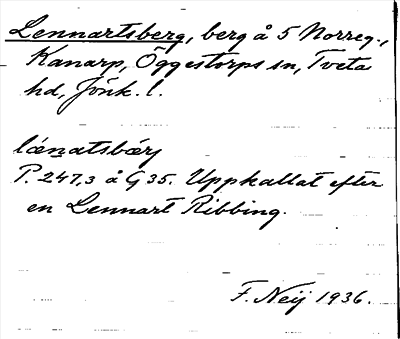 Lennartsberg, berg å 5 Norreg.,
Kanarp, Öggestorps sn, Tveta
hd, Jönk. l.
lænatsbærj
P. 247,3 å G 35. Uppkallat efter
en Lennart Ribbing.
F. Neij 1936.